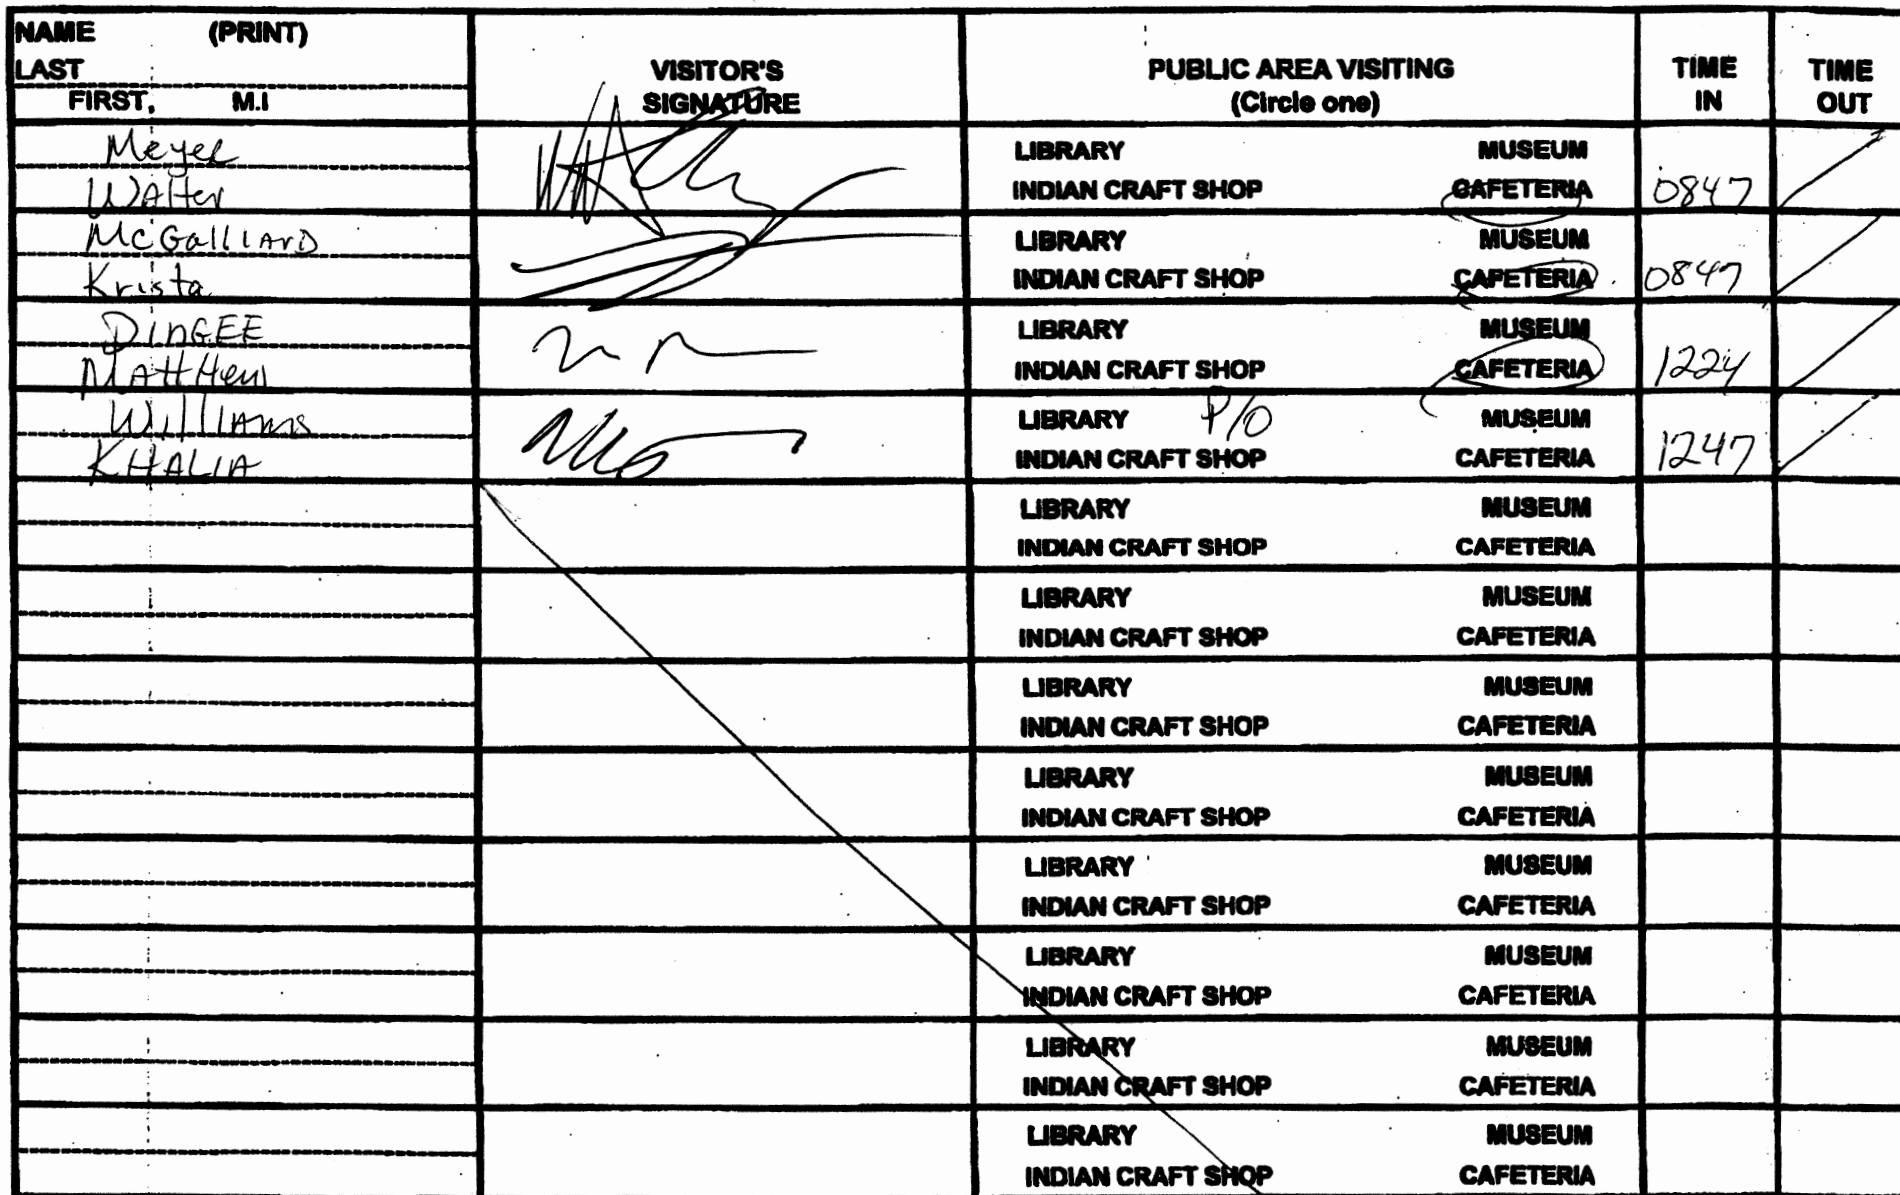 NAME (PRINT)
LAST
FIRST, M.I
VISITOR'S
SIGNATURE
PUBLIC AREA VISITING
(Circle one)
TIME
IN
TIME
OUT
Meyer
Walter
LIBRARY MUSEUM
INDIAN CRAFT SHOP CAFETERIA
0847
McGalliard
Krista
LIBRARY MUSEUM
INDIAN CRAFT SHOP CAFETERIA
0847
DINGEE
Matthew
LIBRARY MUSEUM
INDIAN CRAFT SHOP CAFETERIA
1224
Williams
KHALIA
LIBRARY P/O MUSEUM
INDIAN CRAFT SHOP CAFETERIA
1247
LIBRARY MUSEUM
INDIAN CRAFT SHOP CAFETERIA
LIBRARY MUSEUM
INDIAN CRAFT SHOP CAFETERIA
LIBRARY MUSEUM
INDIAN CRAFT SHOP CAFETERIA
LIBRARY MUSEUM
INDIAN CRAFT SHOP CAFETERIA
LIBRARY MUSEUM
INDIAN CRAFT SHOP CAFETERIA
LIBRARY MUSEUM
INDIAN CRAFT SHOP CAFETERIA
LIBRARY MUSEUM
INDIAN CRAFT SHOP CAFETERIA
LIBRARY MUSEUM
INDIAN CRAFT SHOP CAFETERIA